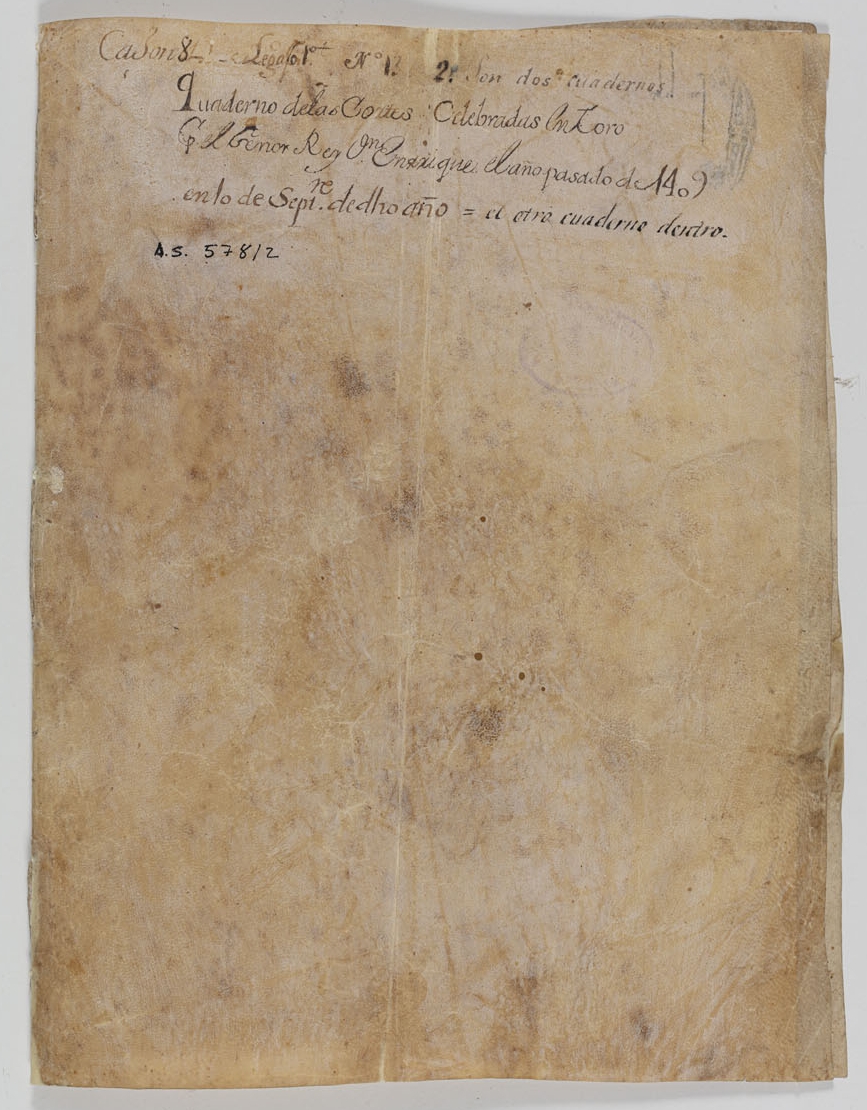 Caxon 8º Legajo 1º Nº 12. 2. Son dos cuadernos.
Quaderno delas Cortes Celebradas En Toro
Pr El Señor Rey Dn Enrrique el año pasado de 1409
en 10 de Septre. de dho año = el otro cuaderno dentro.
A.S. 578/2